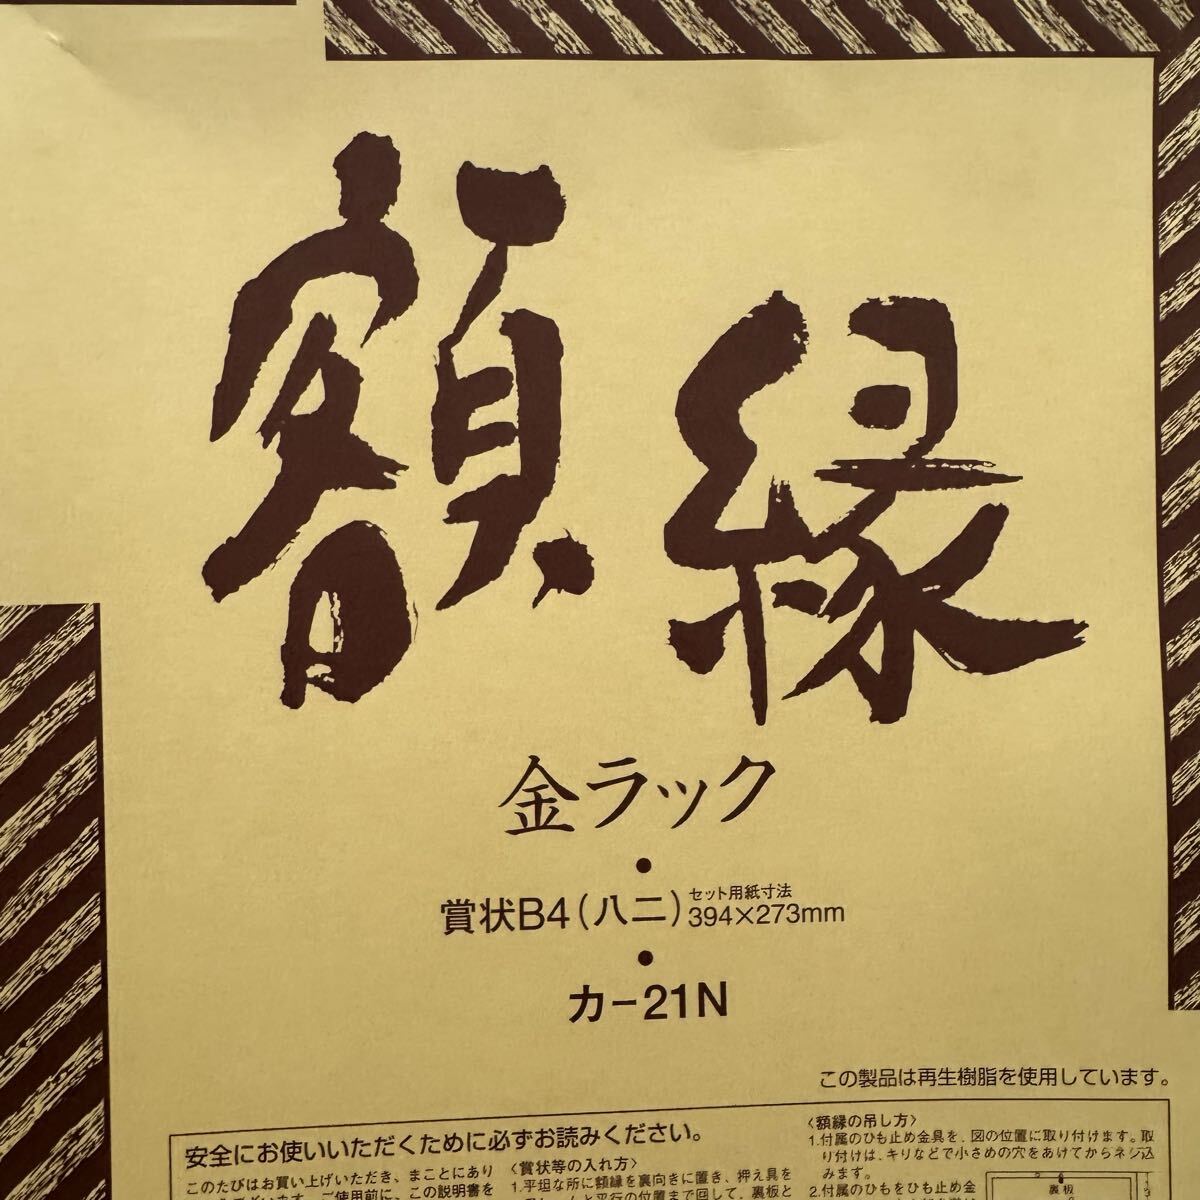 額縁
金ラック
・
賞状B4(八二) セット用紙寸法 394×273mm
・
カ-21N
この製品は再生樹脂を使用しています。
安全にお使いいただくために必ずお読みください。
このたびはお買い上げいただき、まことにあり
ご使用前に、この説明書を
〈賞状等の入れ方〉
1.平坦な所に額縁を裏向きに置き、押え具を
と平行の位置まで回して、裏板と
〈額縁の吊し方〉
1.付属のひも止め金具を、図の位置に取り付けます。取
り付けは、キリなどで小さめの穴をあけてからネジ込
みます。
2.付属のひもをひも止め金
裏板